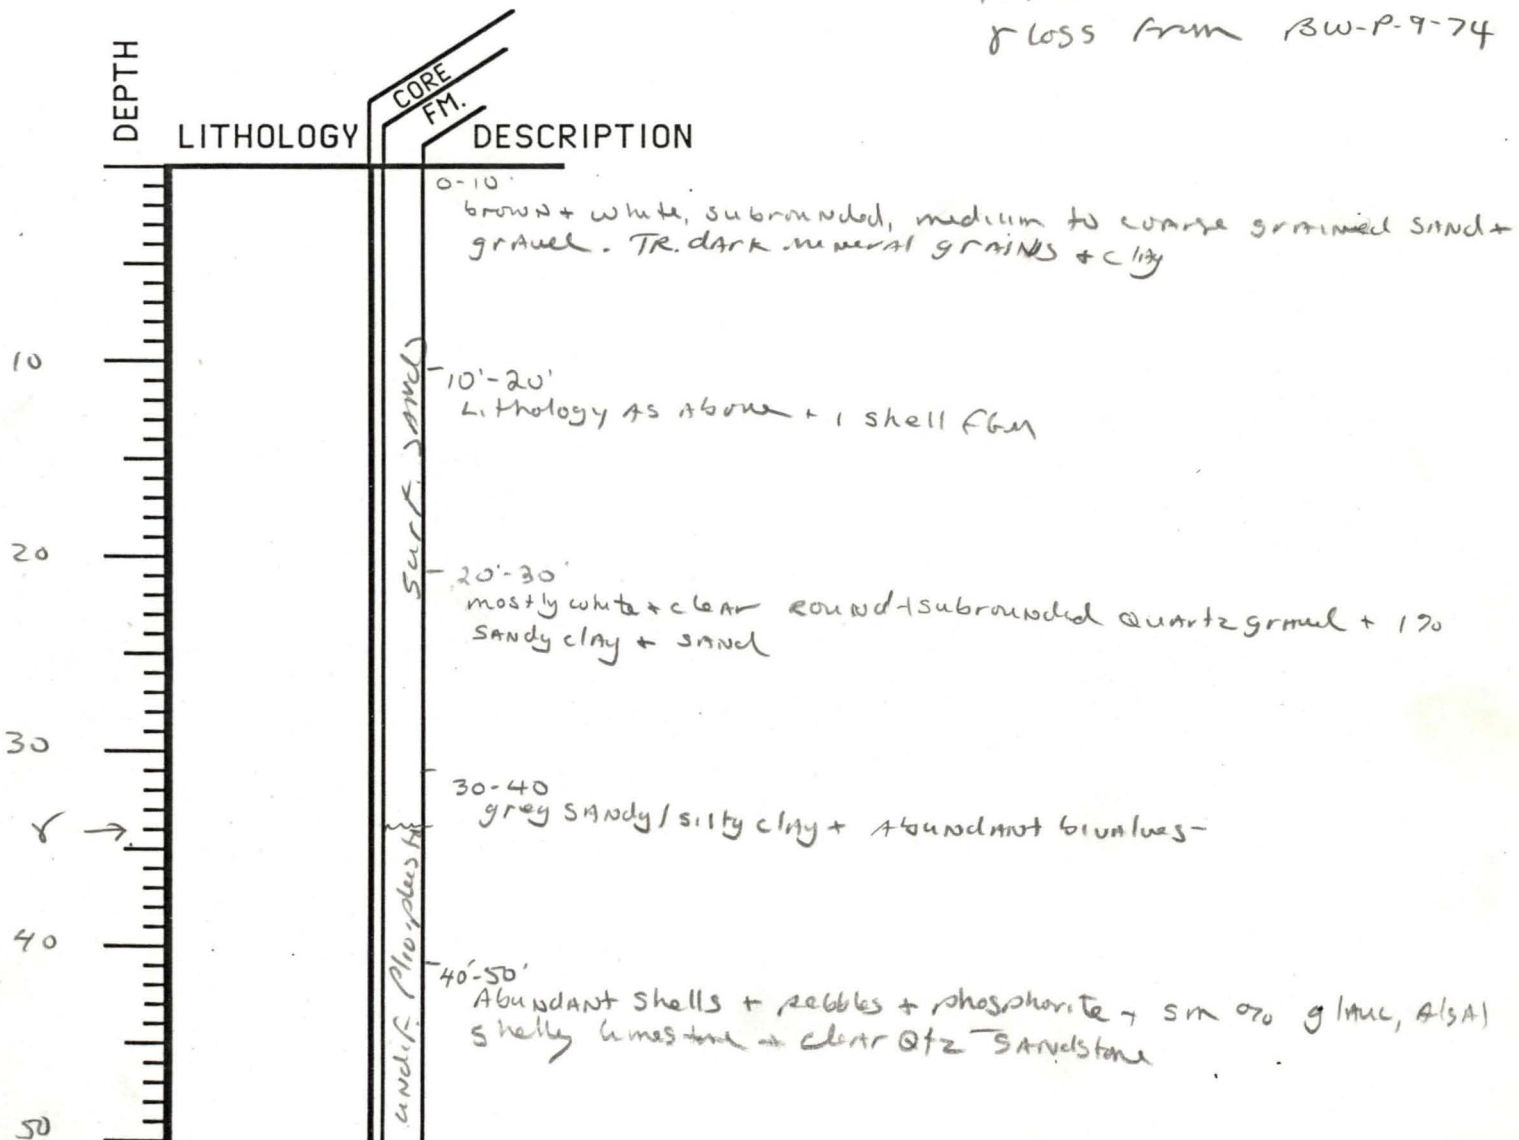 γ Loss from BW-P-9-74
DEPTH
LITHOLOGY
CORE
FM.
DESCRIPTION
0-10'
brown + white, subrounded, medium to coarse grained SAND +
gravel. TR. dark mineral grains + clay
Surf. sands
10
10'-20'
Lithology AS Above + 1 shell FGM
20
20'-30'
mostly white + clear round + subrounded quartz gravel + 1%
SANdy clAy + SANd
30
30-40
grey SANdy/silty clay + Abundant bivalves-
γ →
undif. Plio-pleist
40
40'-50'
Abundant shells + pebbles + phosphorite + sm % glauc, Also
shelly limestone + clear Qtz SANdstone
50